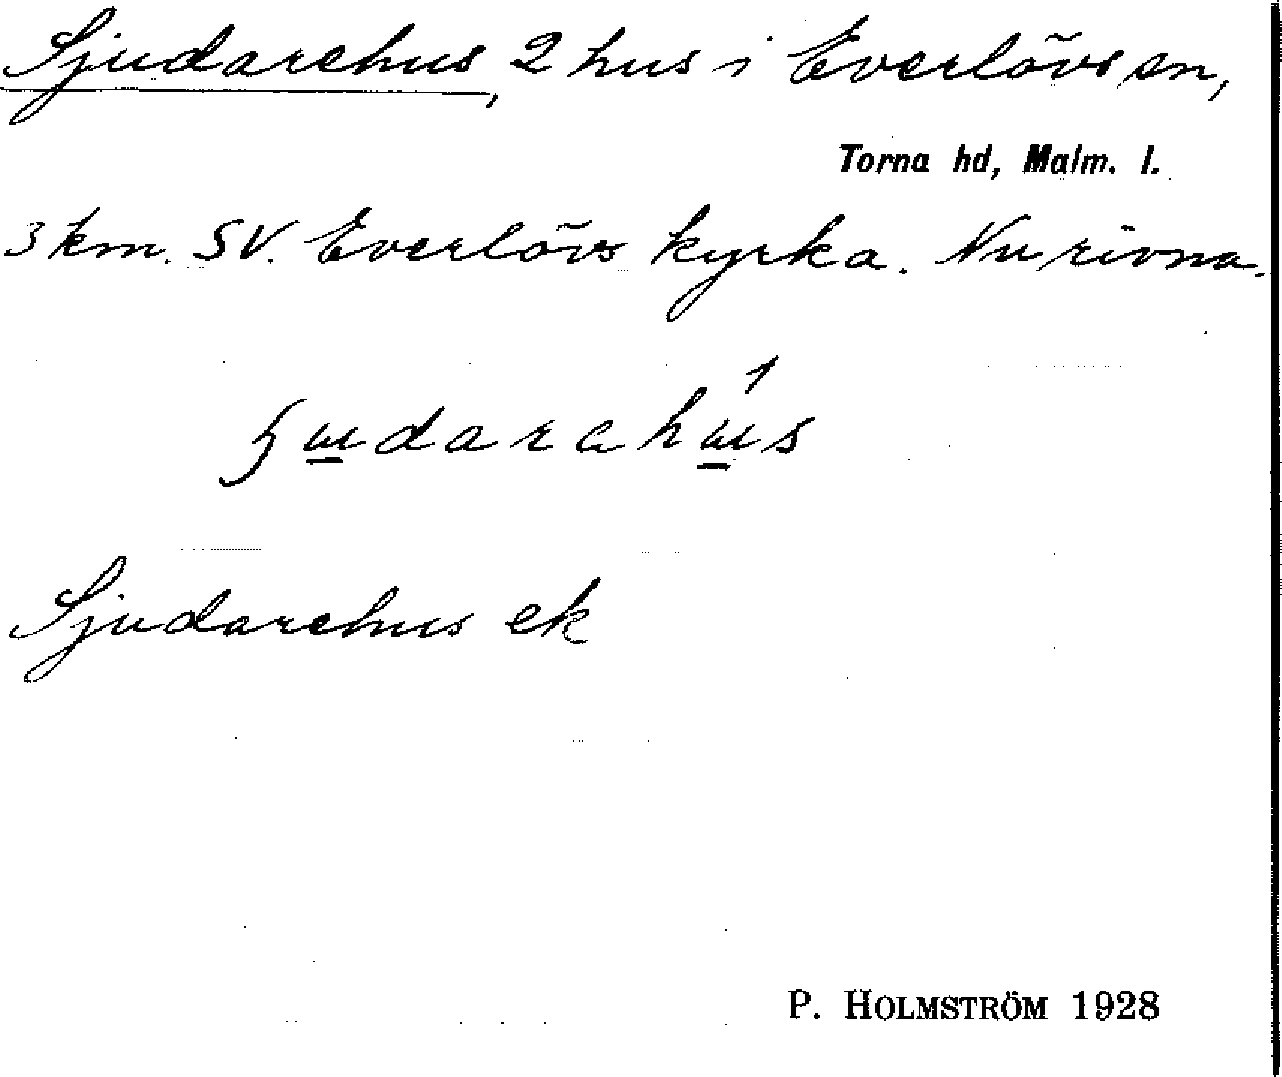 Sjudarehus, 2 hus i Everlövs sn,
Torna hd, Malm. l.
3 km. SV. Everlövs kyrka. Nu rivna.
Sjudarehus ek
P. HOLMSTRÖM 1928